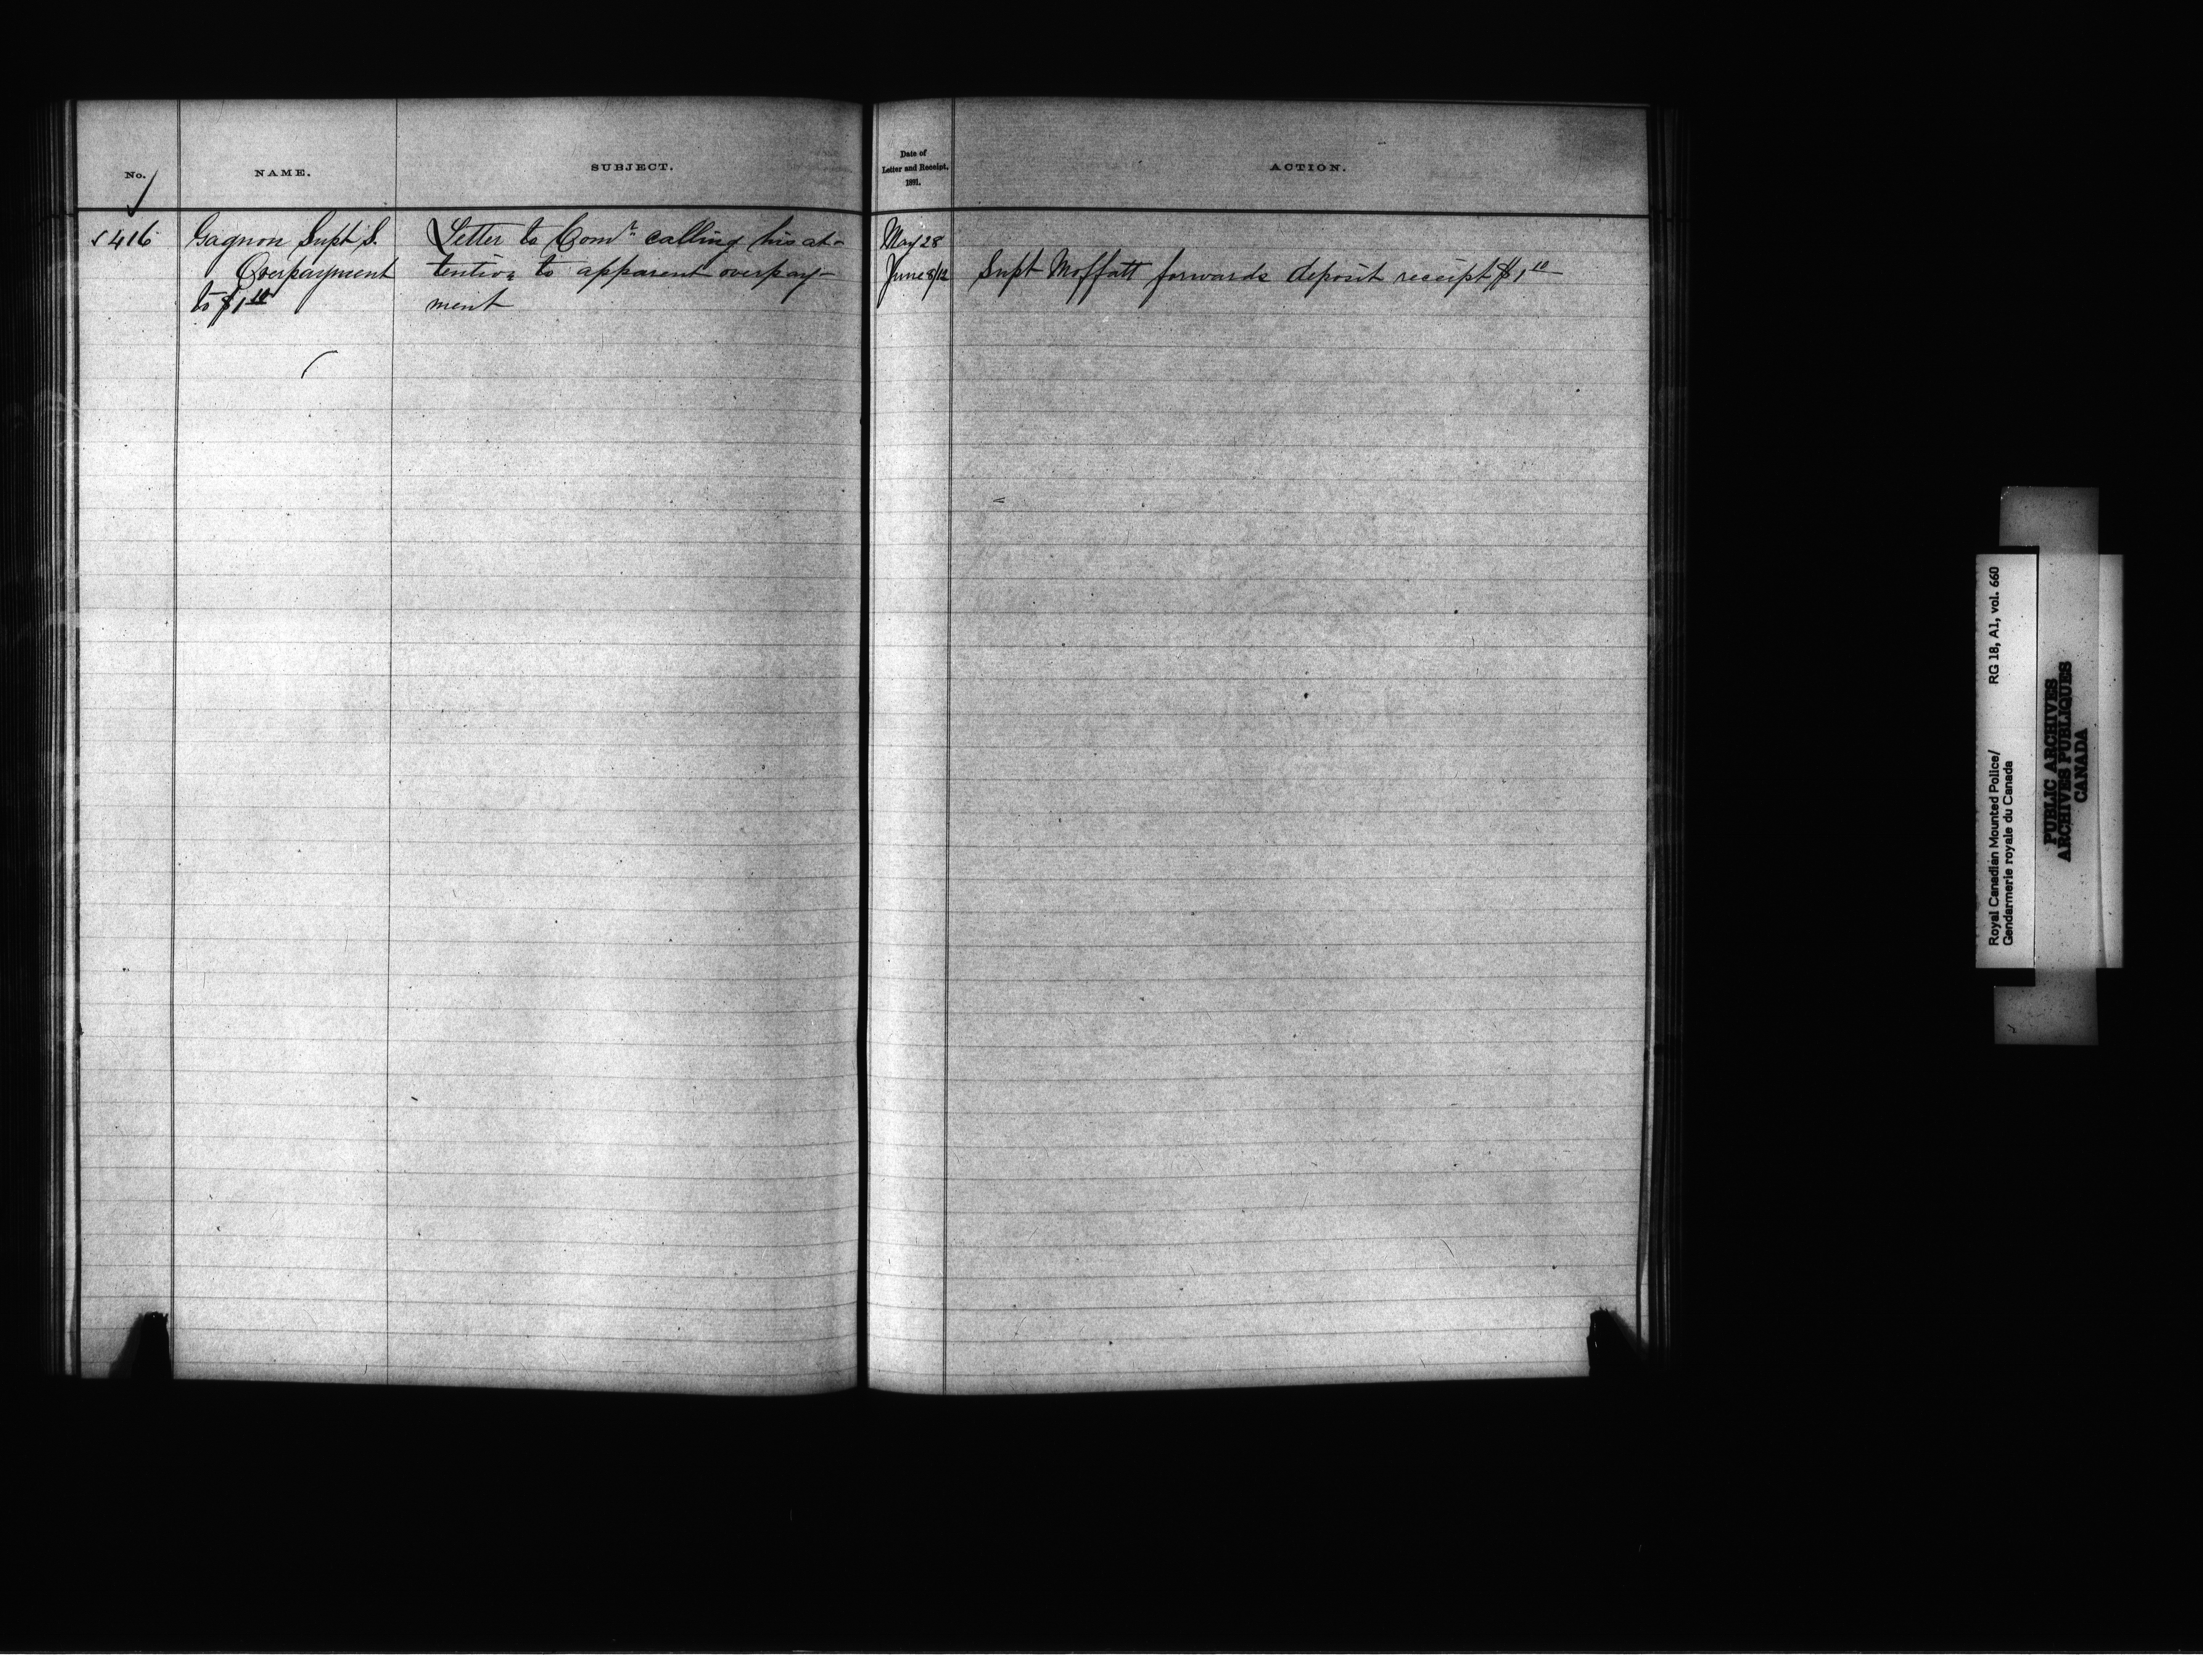 No.
NAME.
SUBJECT.
Date of
Letter and Receipt.
1891.
ACTION.
416
Gagnon Supt S.
Overpayment
to $1.10
Letter to Comr calling his at-
tention to apparent overpay-
ment
May 28
June 8/12
Supt Moffatt forwards deposit receipt $1.10
Royal Canadian Mounted Police/ RG 18, A1, vol. 660
Gendarmerie royale du Canada
PUBLIC ARCHIVES
ARCHIVES PUBLIQUES
CANADA